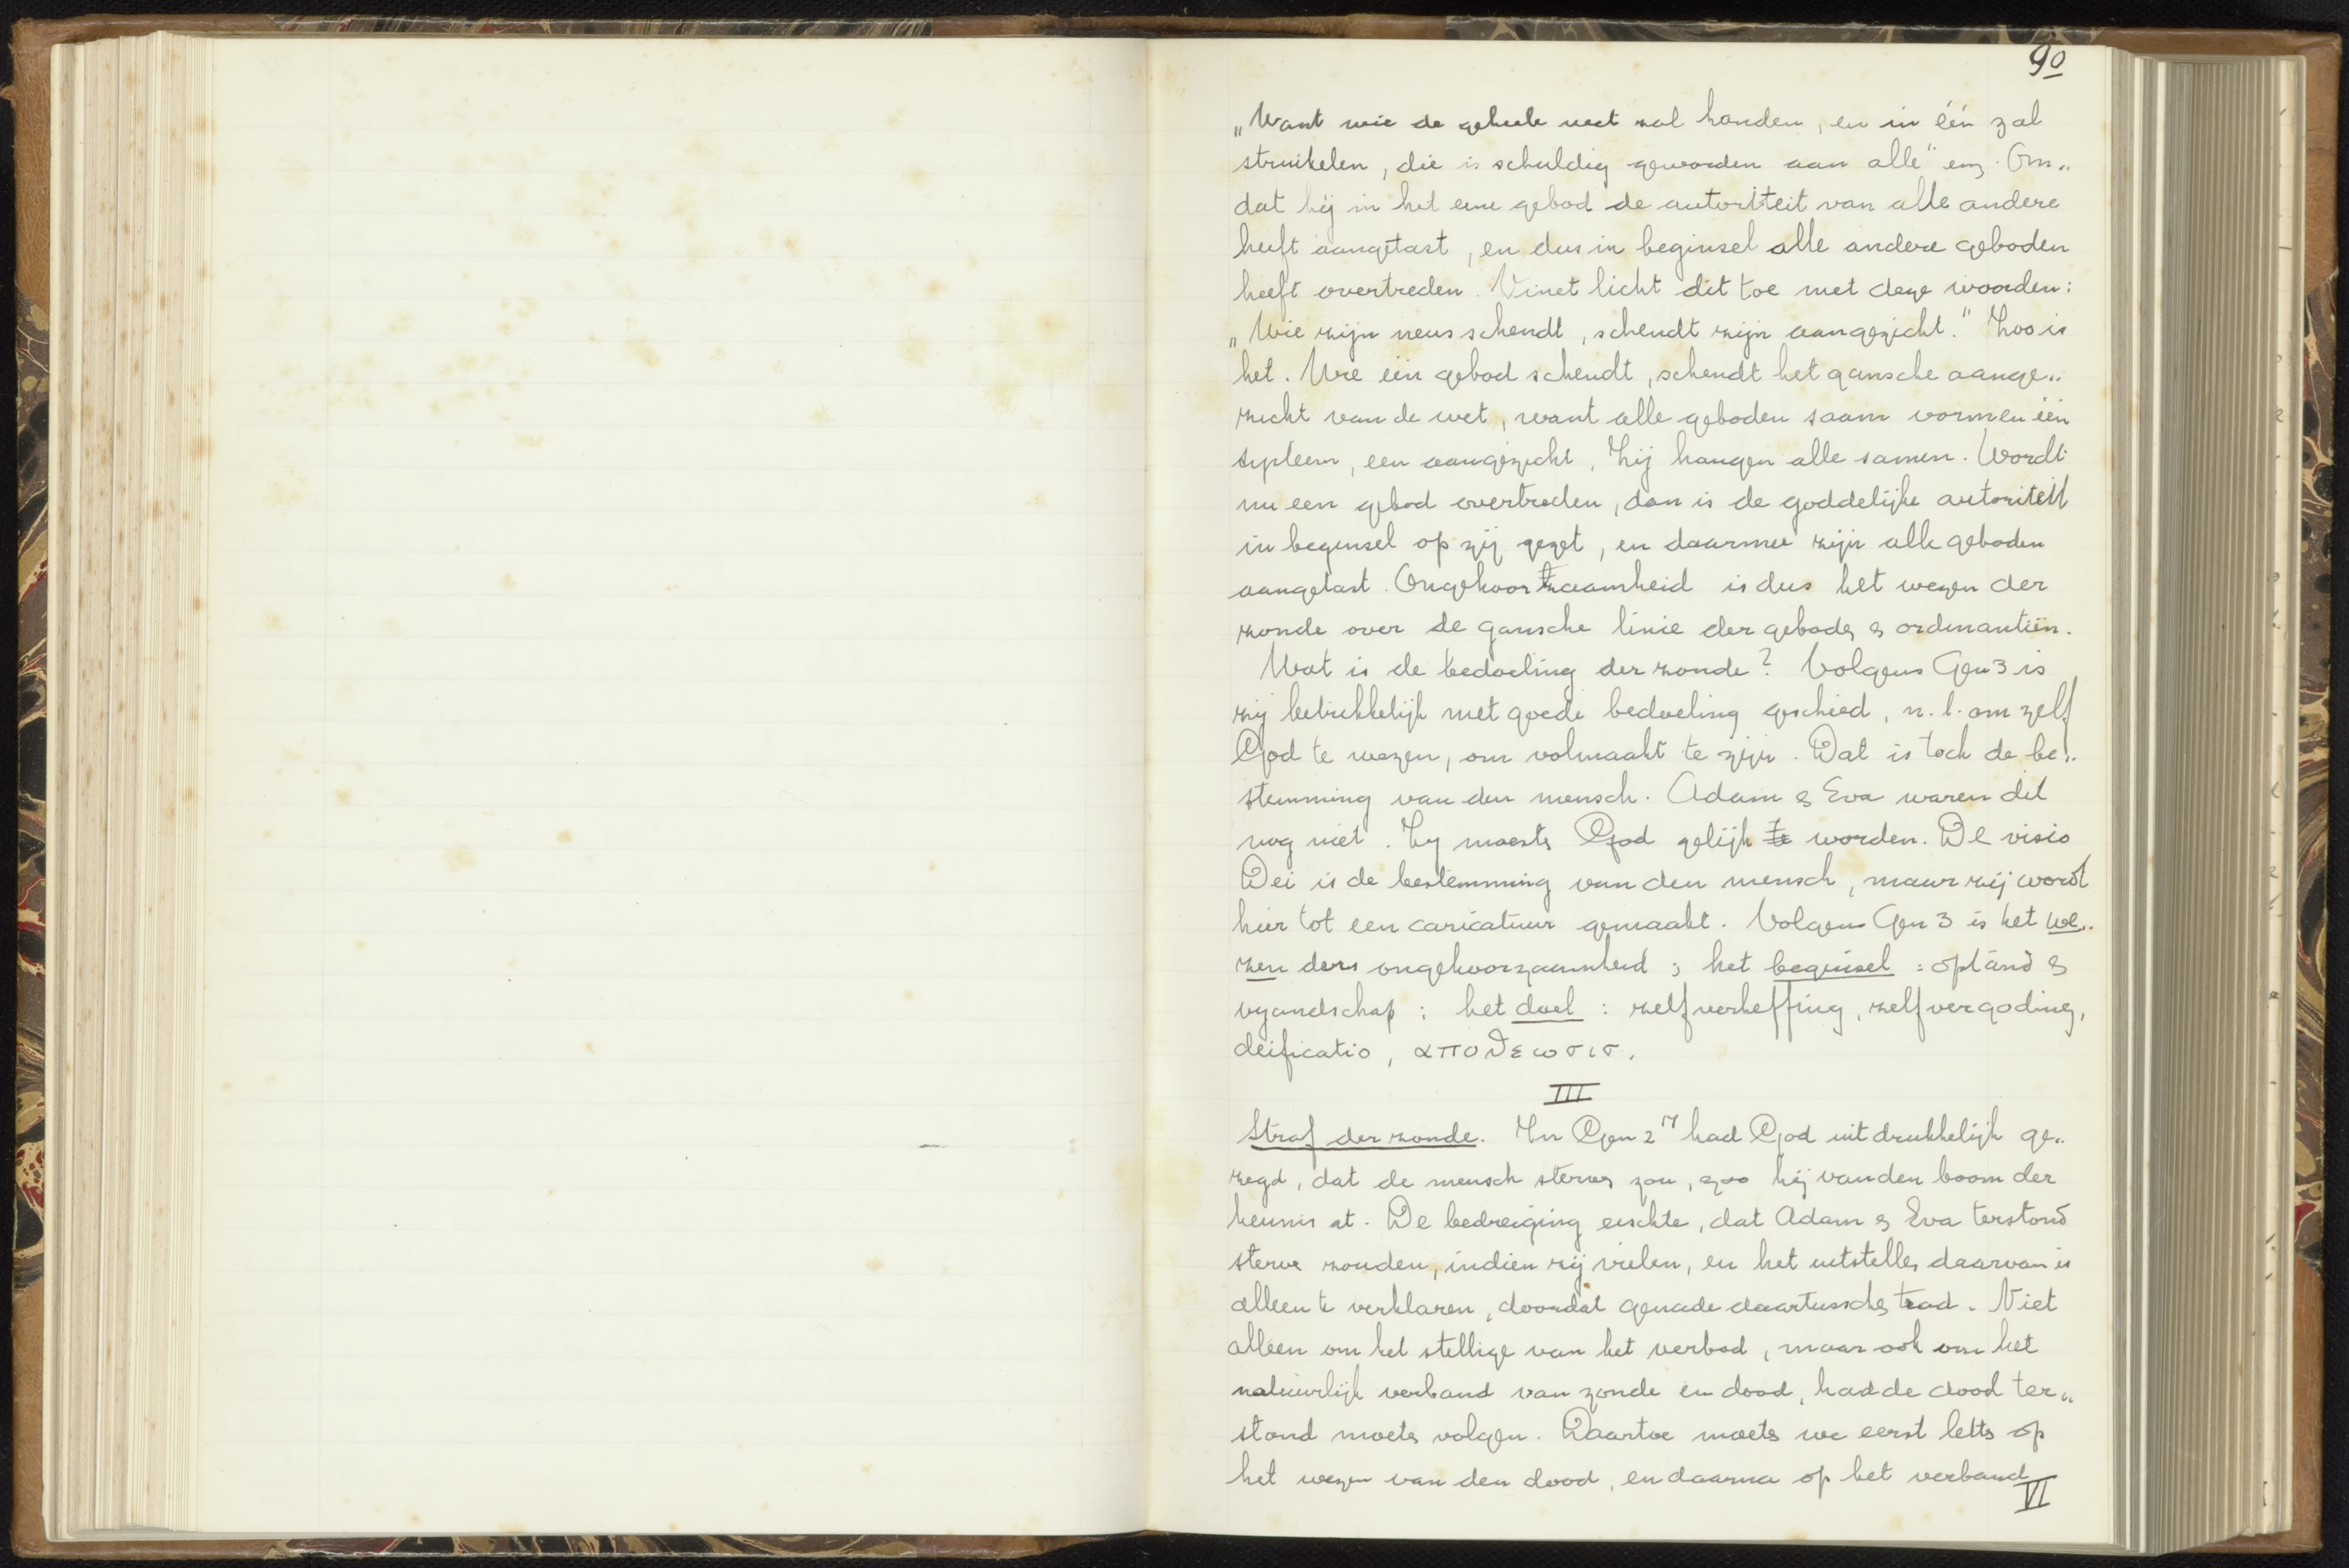 90
„Want wie de geheele wet zal houden, en in één zal
struikelen, die is schuldig geworden aan alle" enz. Om„
dat hij in het eene gebod de autoriteit van alle andere
heeft aangetast, en dus in beginsel alle andere geboden
heeft overtreden. Vinet licht dit toe met deze woorden:
„Wie zijn neus schendt, schendt zijn aangezicht." Zoo is
het. Wie één gebod schendt, schendt het gansche aange„
zicht van de wet, want alle geboden saam vormen één
systeem, een aangezicht, zij hangen alle samen. Wordt
nu een gebod overtreden, dan is de goddelijke autoriteit
in beginsel op zij gezet, en daarmee zijn alle geboden
aangetast. Ongehoorzaamheid is dus het wezen der
zonde over de gansche linie der geboden & ordinantiën.
Wat is de bedoeling der zonde? Volgens Gen 3 is
zij betrekkelijk met goede bedoeling geschied, n.l. om zelf
God te wezen, om volmaakt te zijn. Dat is toch de be„
stemming van den mensch. Adam & Eva waren dit
nog niet. Zij moesten God gelijk te worden. De visio
Dei is de bestemming van den mensch, maar zij wordt
hier tot een caricatuur gemaakt. Volgens Gen 3 is het we„
zen ders ongehoorzaamheid; het beginsel: opstand &
vyandschap; het doel: zelfverheffing, zelfvergoding,
deificatio, αποθεωσισ.
III
Straf der zonde. In Gen 2 17 had God uitdrukkelijk ge„
zegd, dat de mensch sterven zou, zoo hij van den boom der
kennis at. De bedreiging eischte, dat Adam & Eva terstond
sterve zouden, indien zij vielen, en het uitstellen daarvan is
alleen te verklaren, doordat genade daartusschen trad. Niet
alleen om het stellige van het verbod, maar ook om het
natuurlijk verband van zonde en dood, had de dood ter„
stond moeten volgen. Daartoe moeten we eerst letten op
het wezen van den dood, en daarna op het verband
VI